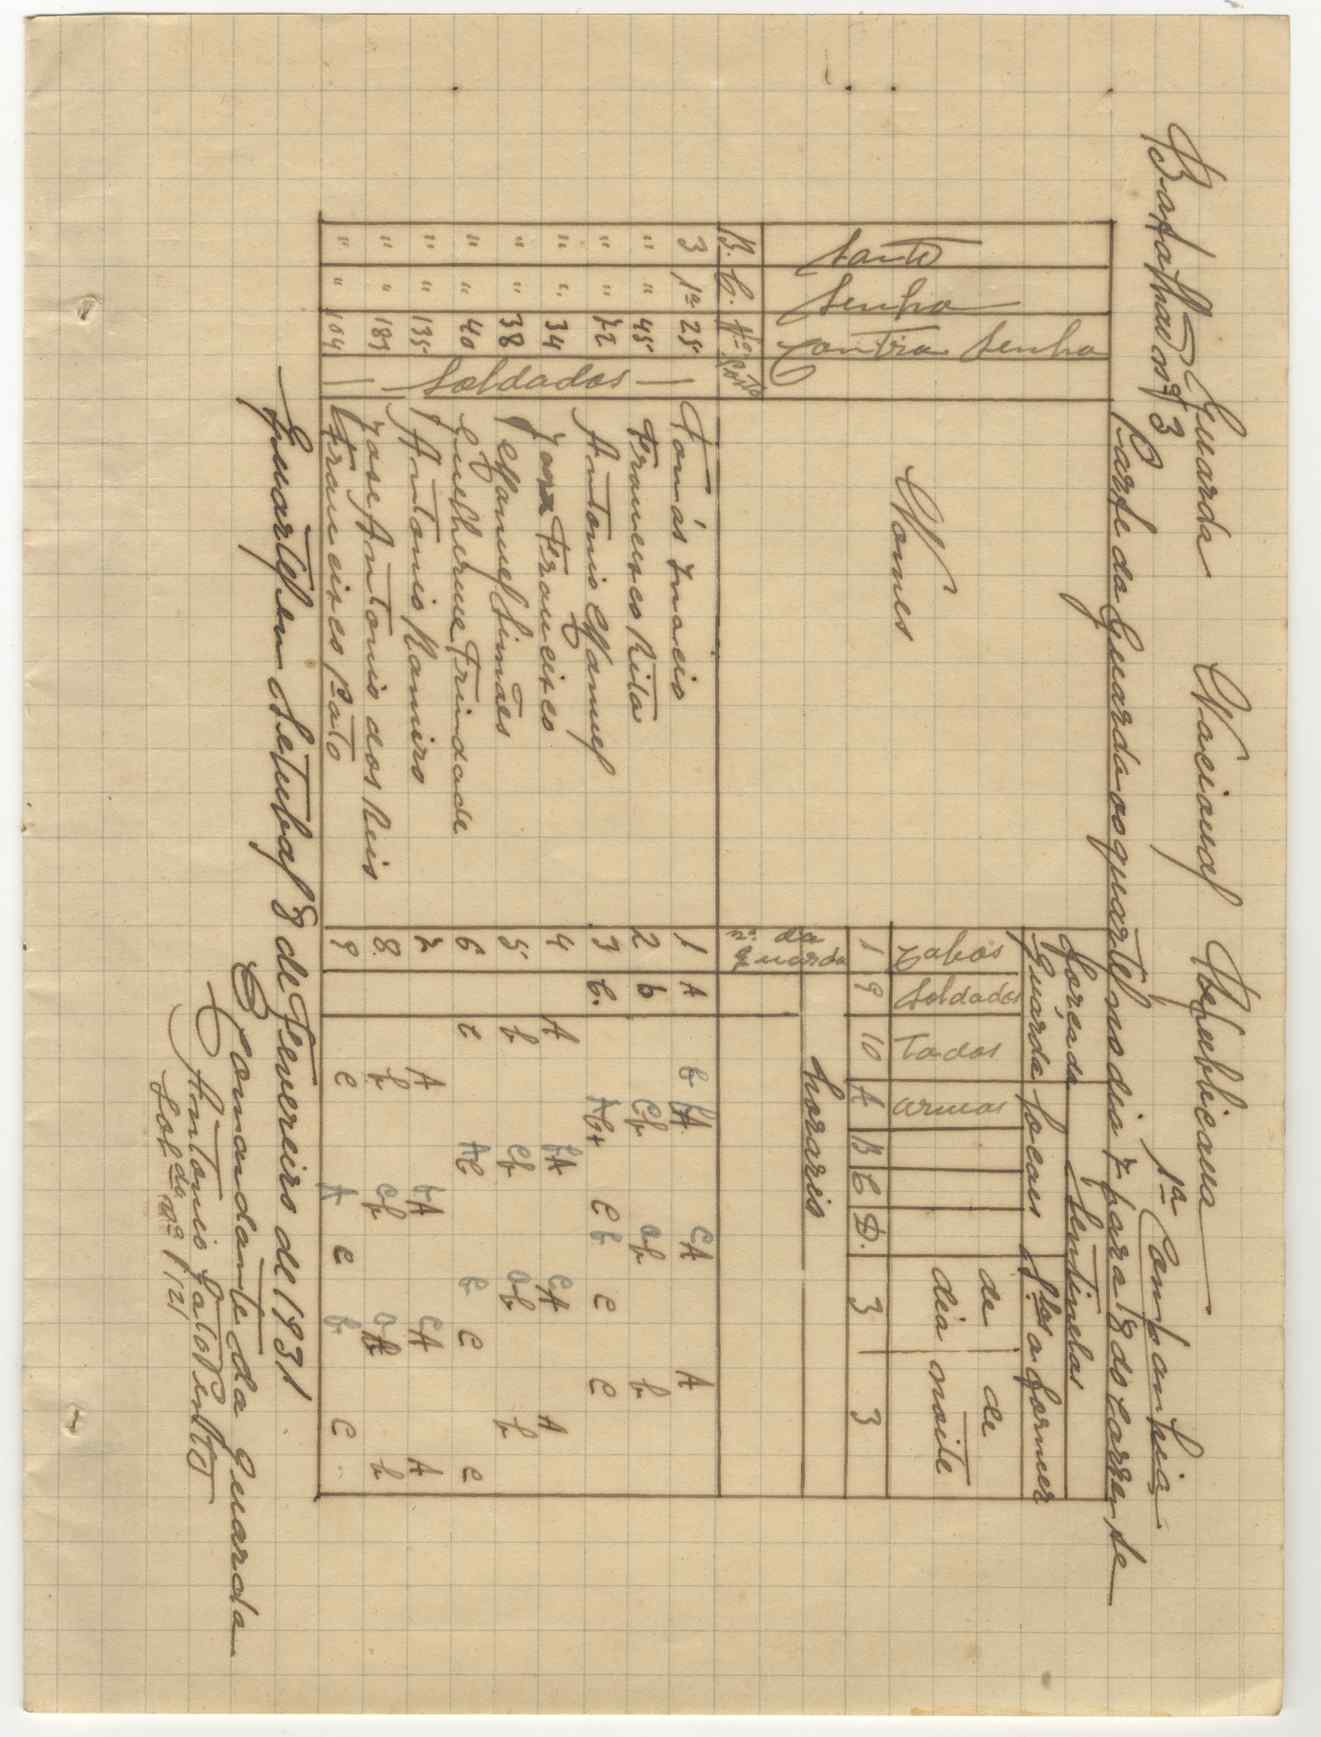 Guarda Nacional Republicana
Batalhão nº 3 1ª Companhia
Parte da Guarda ao quartel no dia 7 para 18 do Corrente
Santo
Senha
Contra Senha
Nomes
Força da Guarda
Sentinelas
Locais
Slos a formar
Cabos Soldados Todos armas de dia de noite
1 9 10 A B C D. 3 3
B. C. Nº Psto nº da guarda horario
3 1ª 25 Tomás Inacio 1 A b bA CA A
" " 45 Francisco Rita 2 b Cb ab b
" " 72 Antonio Manuel 3 C. C b C C
" " 34 José Francisco 4 A bA CA A
" " 38 Manuel Simões 5 b Cb ab b
" " 40 Guilherme Trindade 6 C Ab b C C
" " 135 Antonio Ramiro 7 A bA CA A
" " 183 José Antonio dos Reis 8 b Cb b
" " 104 Francisco Pato 9 C A C b C
— Soldados —
Quartel em Setubal 8 de Fevereiro de 1931
O Comandante da Guarda
Antonio
Solda nº 1/121